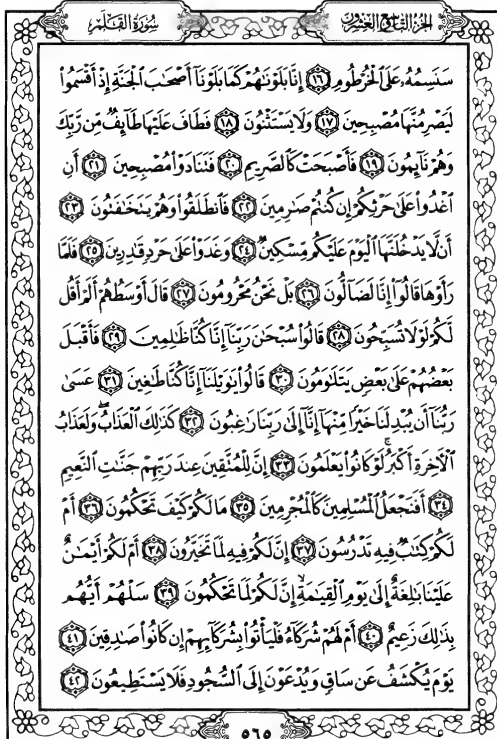 سُورَةُ القَلَمِ
الجزء التاسع والعشرون
سَنَسِمُهُۥ عَلَى ٱلْخُرْطُومِ ١٦ إِنَّا بَلَوْنَٰهُمْ كَمَا بَلَوْنَآ أَصْحَٰبَ ٱلْجَنَّةِ إِذْ أَقْسَمُوا۟
لَيَصْرِمُنَّهَا مُصْبِحِينَ ١٧ وَلَا يَسْتَثْنُونَ ١٨ فَطَافَ عَلَيْهَا طَآئِفٌ مِّن رَّبِّكَ
وَهُمْ نَآئِمُونَ ١٩ فَأَصْبَحَتْ كَٱلصَّرِيمِ ٢٠ فَتَنَادَوْا۟ مُصْبِحِينَ ٢١ أَنِ
ٱغْدُوا۟ عَلَىٰ حَرْثِكُمْ إِن كُنتُمْ صَٰرِمِينَ ٢٢ فَٱنطَلَقُوا۟ وَهُمْ يَتَخَٰفَتُونَ ٢٣
أَن لَّا يَدْخُلَنَّهَا ٱلْيَوْمَ عَلَيْكُم مِّسْكِينٌ ٢٤ وَغَدَوْا۟ عَلَىٰ حَرْدٍ قَٰدِرِينَ ٢٥ فَلَمَّا
رَأَوْهَا قَالُوٓا۟ إِنَّا لَضَآلُّونَ ٢٦ بَلْ نَحْنُ مَحْرُومُونَ ٢٧ قَالَ أَوْسَطُهُمْ أَلَمْ أَقُل
لَّكُمْ لَوْلَا تُسَبِّحُونَ ٢٨ قَالُوا۟ سُبْحَٰنَ رَبِّنَآ إِنَّا كُنَّا ظَٰلِمِينَ ٢٩ فَأَقْبَلَ
بَعْضُهُمْ عَلَىٰ بَعْضٍ يَتَلَٰوَمُونَ ٣٠ قَالُوا۟ يَٰوَيْلَنَآ إِنَّا كُنَّا طَٰغِينَ ٣١ عَسَىٰ
رَبُّنَآ أَن يُبْدِلَنَا خَيْرًا مِّنْهَآ إِنَّآ إِلَىٰ رَبِّنَا رَٰغِبُونَ ٣٢ كَذَٰلِكَ ٱلْعَذَابُ ۖ وَلَعَذَابُ
ٱلْءَاخِرَةِ أَكْبَرُ ۚ لَوْ كَانُوا۟ يَعْلَمُونَ ٣٣ إِنَّ لِلْمُتَّقِينَ عِندَ رَبِّهِمْ جَنَّٰتِ ٱلنَّعِيمِ
٣٤ أَفَنَجْعَلُ ٱلْمُسْلِمِينَ كَٱلْمُجْرِمِينَ ٣٥ مَا لَكُمْ كَيْفَ تَحْكُمُونَ ٣٦ أَمْ
لَكُمْ كِتَٰبٌ فِيهِ تَدْرُسُونَ ٣٧ إِنَّ لَكُمْ فِيهِ لَمَا تَخَيَّرُونَ ٣٨ أَمْ لَكُمْ أَيْمَٰنٌ
عَلَيْنَا بَٰلِغَةٌ إِلَىٰ يَوْمِ ٱلْقِيَٰمَةِ ۙ إِنَّ لَكُمْ لَمَا تَحْكُمُونَ ٣٩ سَلْهُمْ أَيُّهُم
بِذَٰلِكَ زَعِيمٌ ٤٠ أَمْ لَهُمْ شُرَكَآءُ فَلْيَأْتُوا۟ بِشُرَكَآئِهِمْ إِن كَانُوا۟ صَٰدِقِينَ ٤١
يَوْمَ يُكْشَفُ عَن سَاقٍ وَيُدْعَوْنَ إِلَى ٱلسُّجُودِ فَلَا يَسْتَطِيعُونَ ٤٢
٥٦٥